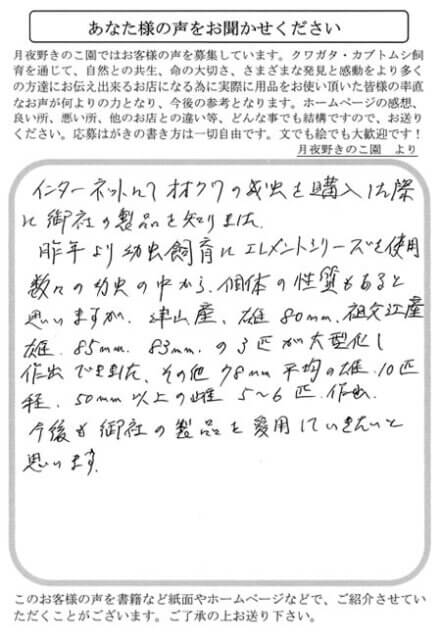 あなた様の声をお聞かせください
月夜野きのこ園ではお客様の声を募集しています。クワガタ・カブトムシ飼
育を通じて、自然との共生、命の大切さ、さまざまな発見と感動をより多く
の方達にお伝え出来るお店になる為に実際に用品をお使い頂いた皆様の率直
なお声が何よりの力となり、今後の参考となります。ホームページの感想、
良い所、悪い所、他のお店との違い等、どんな事でも結構ですので、お送り
ください。応募はがきの書き方は一切自由です。文でも絵でも大歓迎です！
月夜野きのこ園　より
インターネットにてオオクワの成虫を購入した際
に御社の製品を知りました。
昨年より幼虫飼育にエレメントシリーズを使用
数々の幼虫の中から、個体の性質もあると
思いますが、津山産、雄80mm、祖父江産
雄、85mm、83mm、の3匹が大型化し
作出できました、その他78mm平均の雄、10匹
程、50mm以上の雌5〜6匹、作出、
今後も御社の製品を愛用していきたいと
思います。
このお客様の声を書籍など紙面やホームページなどで、ご紹介させてい
ただくことがございます。ご了承の上お送り下さい。